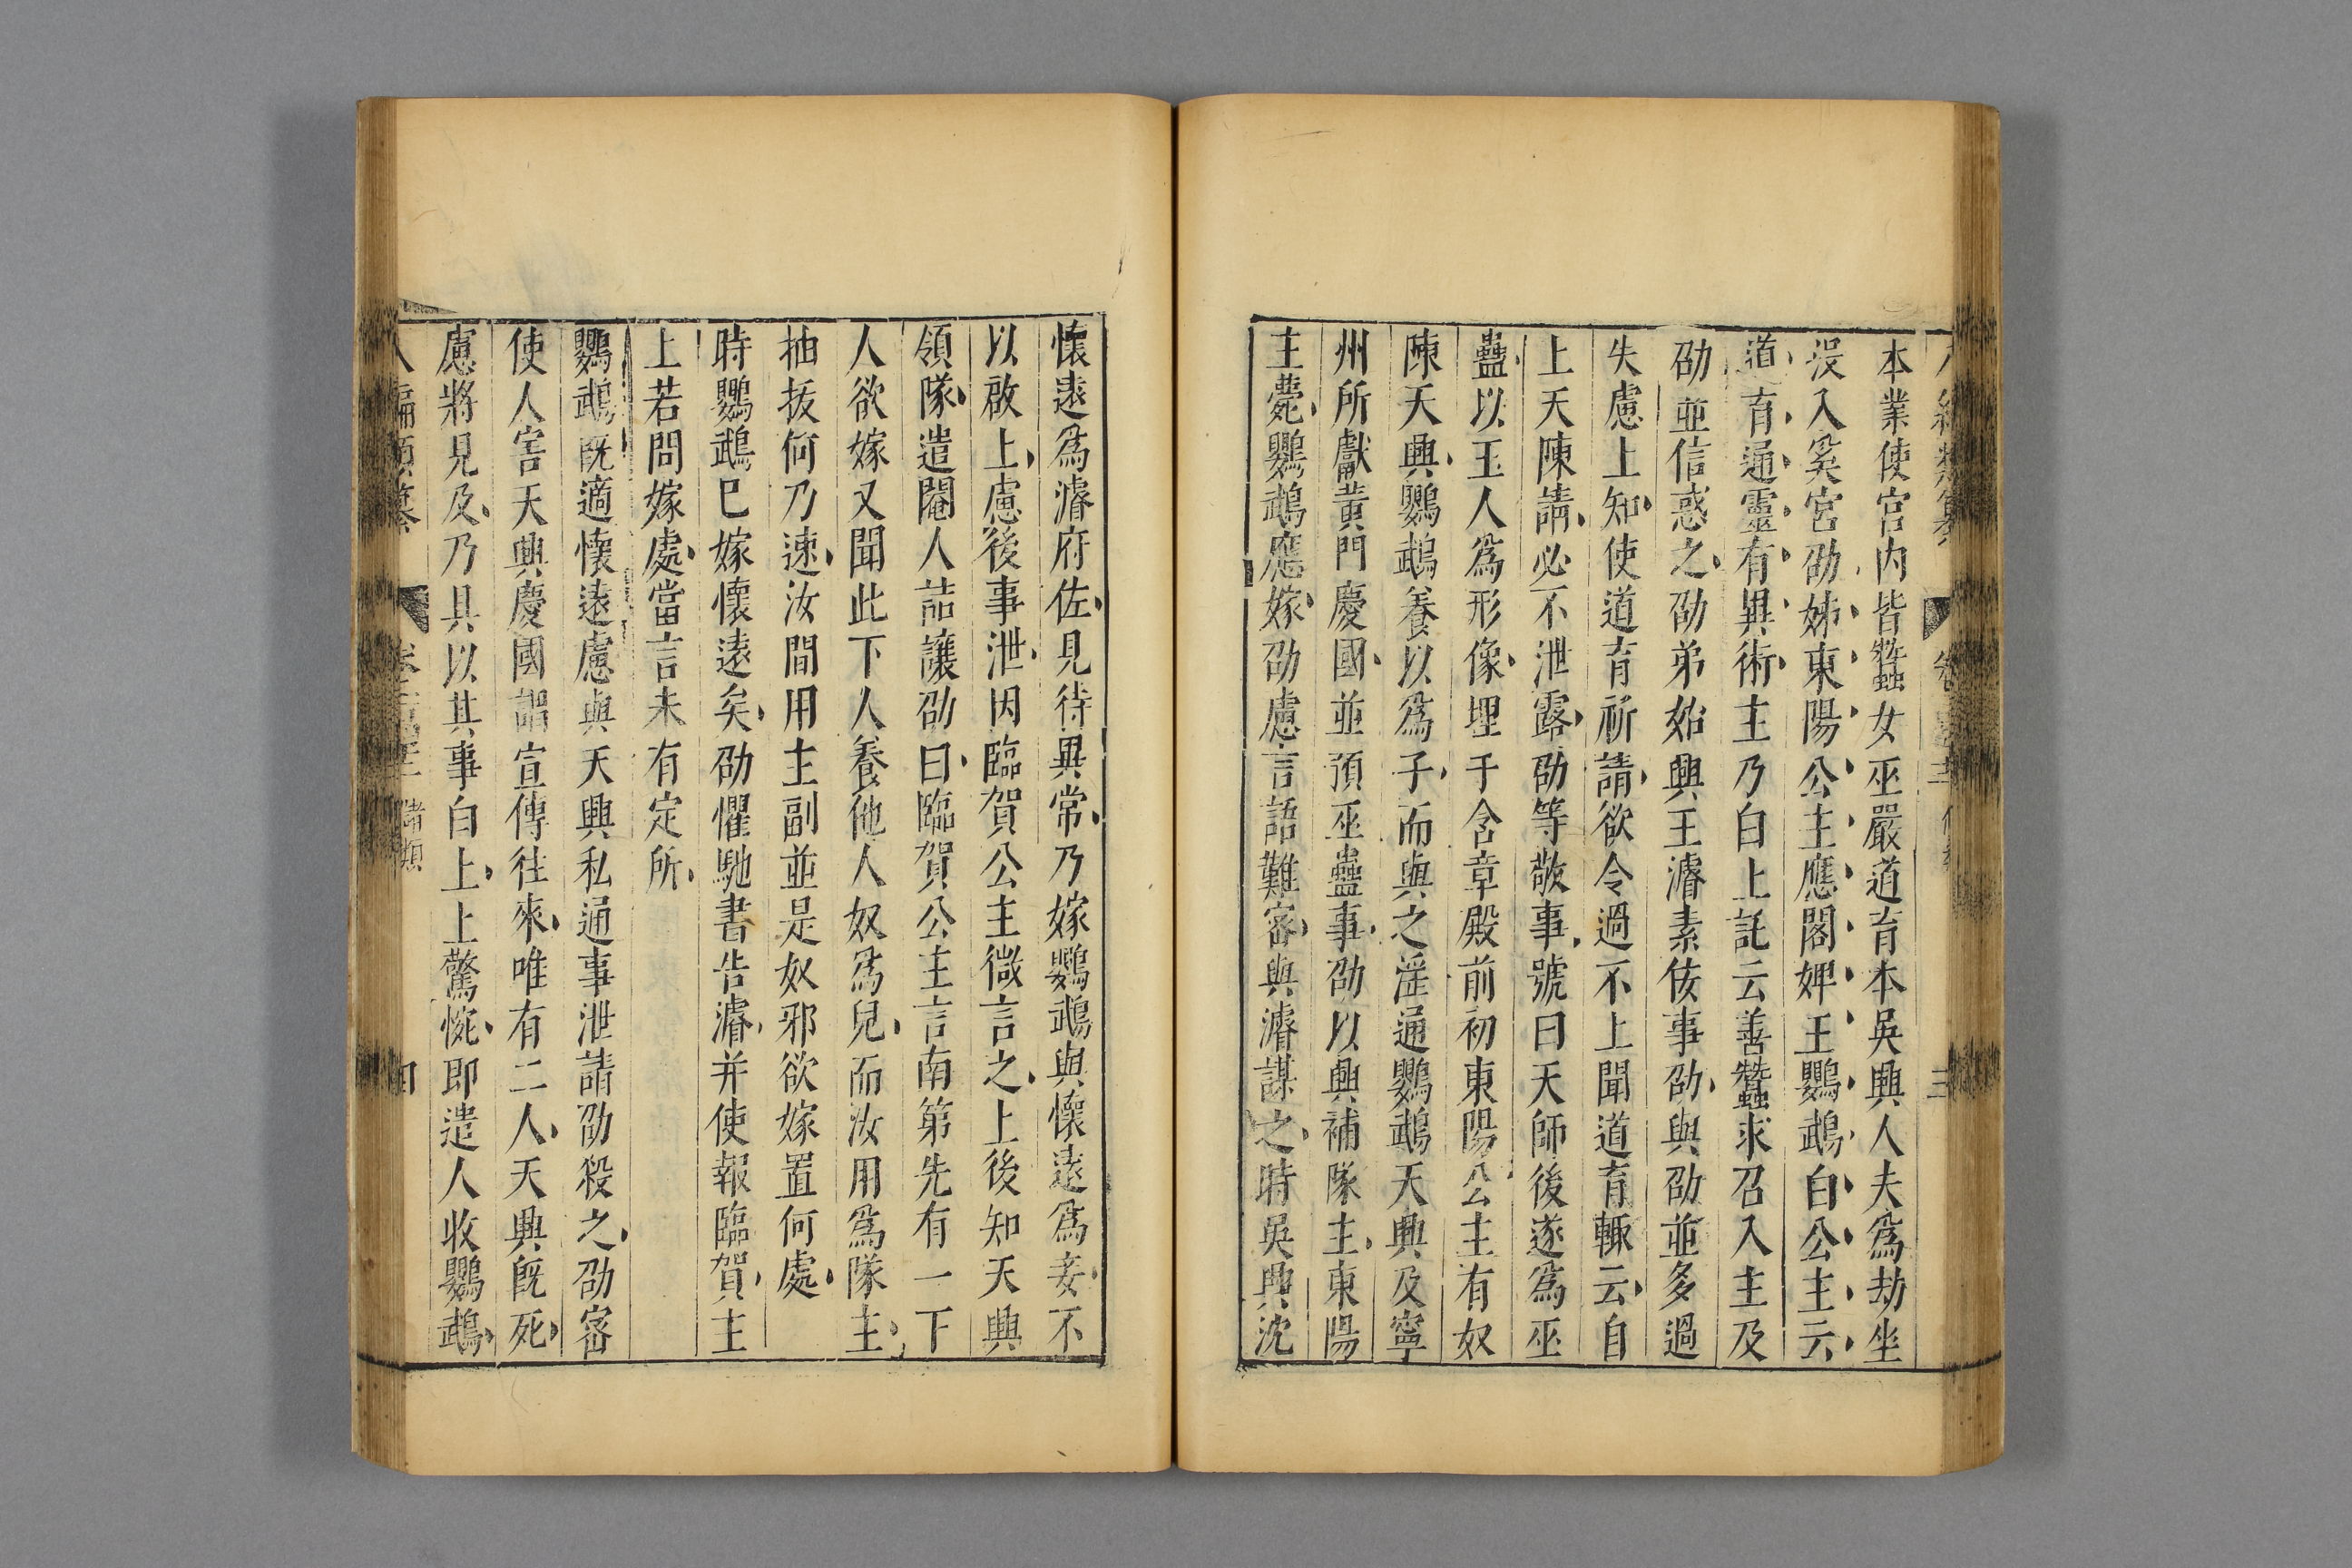 本業使宮内皆蠶女巫嚴道育本吳興人夫爲劫坐
没入奚宮劭姊東陽公主應閤婢王鸚鵡白公主云
道育通靈有異術主乃白上託云善蠶求召入主及
劭並信惑之劭弟始興王濬素佞事劭與劭並多過
失慮上知使道育祈請欲令過不上聞道育輒云自
上天陳請必不泄露劭等敬事號曰天師後遂爲巫
蠱以玉人爲形像埋于含章殿前初東陽公主有奴
陳天興鸚鵡養以爲子而與之淫通鸚鵡天興及寧
州所獻黃門慶國並預巫蠱事劭以興補隊主東陽
主薨鸚鵡應嫁劭慮言語難密與濬謀之時吳興沈
懷遠爲濬府佐見待異常乃嫁鸚鵡與懷遠爲妾不
以啟上慮後事泄因臨賀公主微言之上後知天興
領隊遣閹人詰讓劭曰臨賀公主言南第先有一下
人欲嫁又聞此下人養他人奴爲兒而汝用爲隊主
抽拔何乃速汝間用主副並是奴邪欲嫁置何處
時鸚鵡已嫁懷遠矣劭懼馳書告濬并使報臨賀主
上若問嫁處當言未有定所
鸚鵡旣適懷遠慮與天興私通事泄請劭殺之劭密
使人害天興慶國謂宣傳往來唯有二人天興旣死
慮將見及乃具以其事白上上驚惋即遣人收鸚鵡